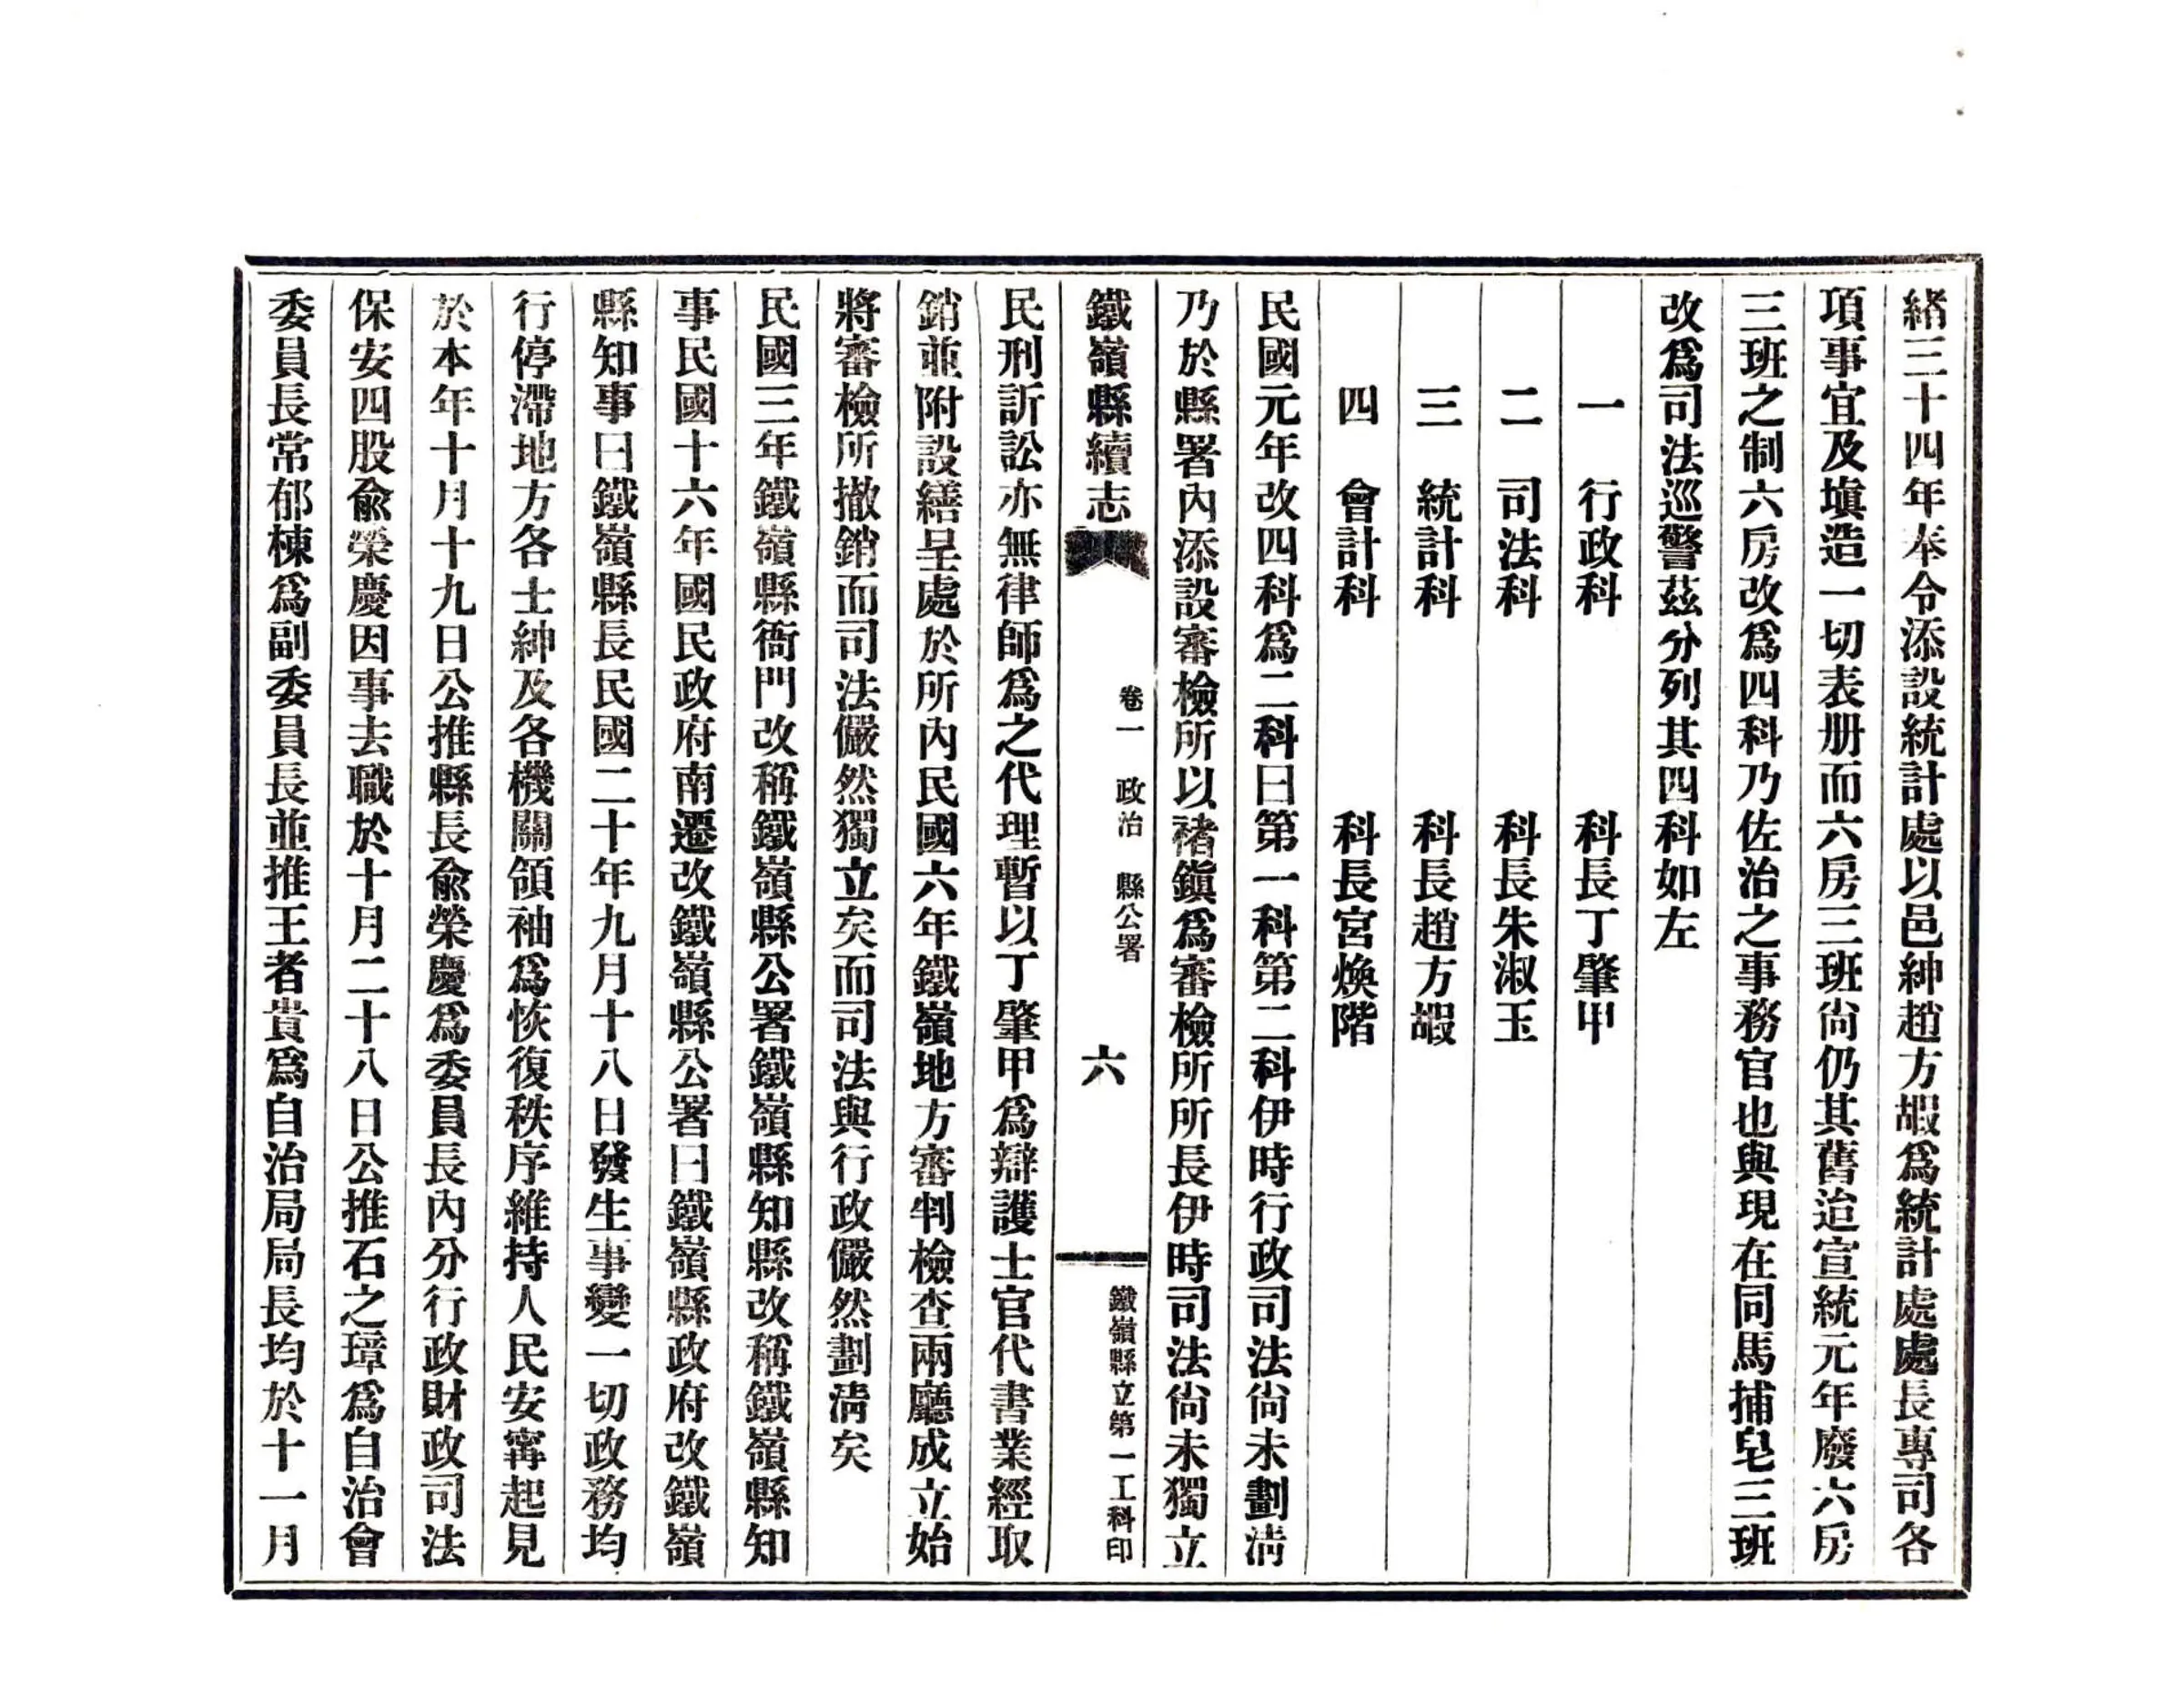 緒三十四年奉令添設統計處以邑紳趙方嘏爲統計處處長專司各
項事宜及塡造一切表册而六房三班尙仍其舊迨宣統元年廢六房
三班之制六房改爲四科乃佐治之事務官也與現在同馬捕皂三班
改爲司法巡警茲分列其四科如左
一　行政科　科長丁肇甲
二　司法科　科長朱淑玉
三　統計科　科長趙方嘏
四　會計科　科長宮煥階
民國元年改四科爲二科曰第一科第二科伊時行政司法尙未劃淸
乃於縣署內添設審檢所以褚鎭爲審檢所所長伊時司法尙未獨立
鐵嶺縣續志　卷一　政治　縣公署　六　鐵嶺縣立第一工科印
民刑訴訟亦無律師爲之代理暫以丁肇甲爲辯護士官代書業經取
銷並附設繕呈處於所內民國六年鐵嶺地方審判檢查兩廳成立始
將審檢所撤銷而司法儼然獨立矣而司法與行政儼然劃淸矣
民國三年鐵嶺縣衙門改稱鐵嶺縣公署鐵嶺縣知縣改稱鐵嶺縣知
事民國十六年國民政府南遷改鐵嶺縣公署曰鐵嶺縣政府改鐵嶺
縣知事曰鐵嶺縣長民國二十年九月十八日發生事變一切政務均
行停滯地方各士紳及各機關領袖爲恢復秩序維持人民安寗起見
於本年十月十九日公推縣長兪榮慶爲委員長內分行政財政司法
保安四股兪榮慶因事去職於十月二十八日公推石之璋爲自治會
委員長常郁棟爲副委員長並推王者貴爲自治局局長均於十一月